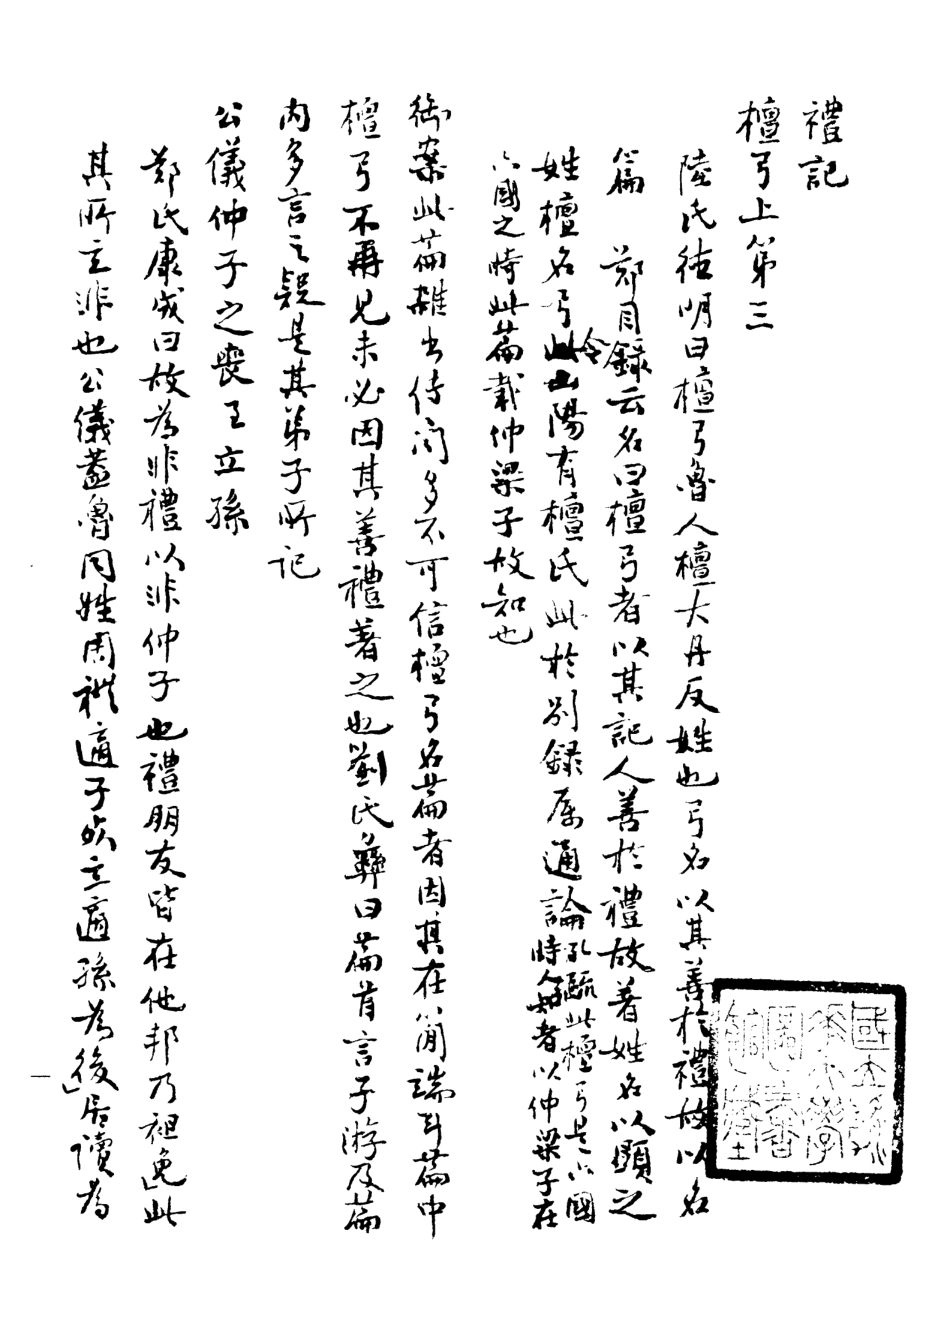 禮記
檀弓上第三
陸氏徳明曰檀弓魯人檀大丹反姓也弓名以其善於禮故以名
篇　鄭目録云名曰檀弓者以其記人善於禮故著姓名以顯之
姓檀名弓今山陽有檀氏此於別録屬通論孔疏此檀弓是六國
時人知者以仲梁子在
六國之時此篇載仲梁子故知也
御案此篇雜出傳聞多不可信檀弓名篇者因其在簡端耳篇中
檀弓不再見未必因其善禮著之也劉氏彝曰篇首言子游及篇
内多言之疑是其弟子所記
公儀仲子之喪
立孫
鄭氏康成曰故為非禮以非仲子也禮朋友皆在他邦乃袒免此
其所立非也公儀蓋魯同姓周禮適子死立適孫為後居讀為
一
國立
大學
圖書
館藏